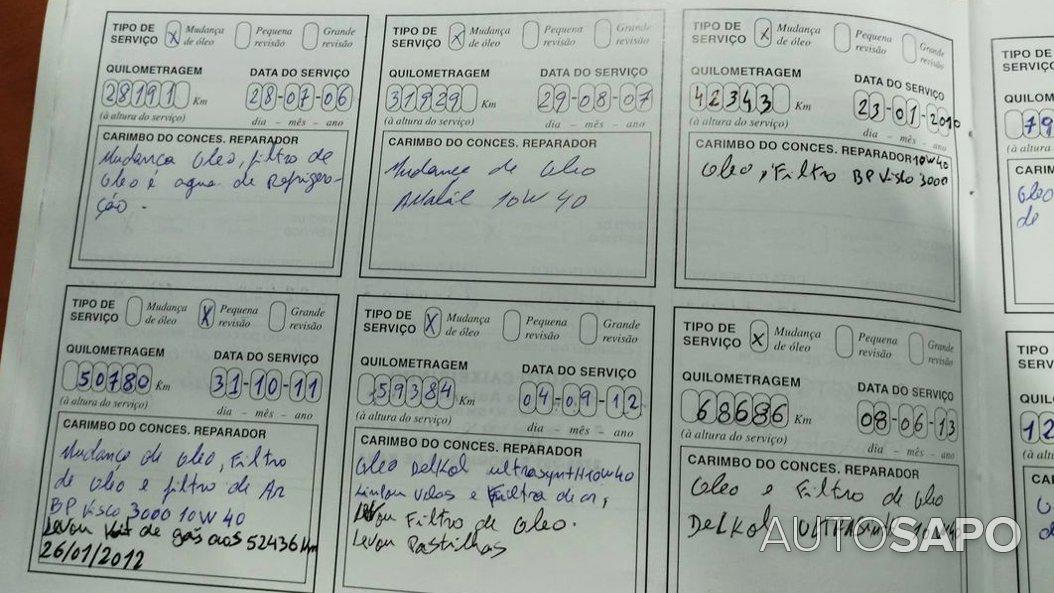 TIPO DE SERVIÇO X Mudança de óleo Pequena revisão Grande revisão
QUILOMETRAGEM DATA DO SERVIÇO
28191 Km 28-07-06
(à altura do serviço) dia – mês – ano
CARIMBO DO CONCES. REPARADOR
Mudança Oleo, filtro de
Oleo é agua de Refrigera-
ção.
TIPO DE SERVIÇO X Mudança de óleo Pequena revisão Grande revisão
QUILOMETRAGEM DATA DO SERVIÇO
31929 Km 29-08-07
(à altura do serviço) dia – mês – ano
CARIMBO DO CONCES. REPARADOR
Mudança de Oleo
10W 40
TIPO DE SERVIÇO X Mudança de óleo Pequena revisão Grande revisão
QUILOMETRAGEM DATA DO SERVIÇO
42343 Km 23-01-2010
(à altura do serviço) dia – mês – ano
CARIMBO DO CONCES. REPARADOR 10W40
Oleo, Filtro BP Visco 3000
TIPO DE SERVIÇO Mudança de óleo X Pequena revisão Grande revisão
QUILOMETRAGEM DATA DO SERVIÇO
50780 Km 31-10-11
(à altura do serviço) dia – mês – ano
CARIMBO DO CONCES. REPARADOR
Mudança de Oleo, Filtro
de óleo e filtro de Ar
BP Visco 3000 10W40
Levou Kit de gás aos 52436 Km
26/01/2012
TIPO DE SERVIÇO X Mudança de óleo Pequena revisão Grande revisão
QUILOMETRAGEM DATA DO SERVIÇO
59384 Km 04-09-12
(à altura do serviço) dia – mês – ano
CARIMBO DO CONCES. REPARADOR
Oleo Delkol ultrasynth 10W40
Velas e Filtro de ar,
Levou Filtro de Oleo.
Levou Pastilhas
TIPO DE SERVIÇO X Mudança de óleo Pequena revisão Grande revisão
QUILOMETRAGEM DATA DO SERVIÇO
68686 Km 08-06-13
(à altura do serviço) dia – mês – ano
CARIMBO DO CONCES. REPARADOR
Oleo e Filtro de Oleo
Delkol 10W40
AUTOSAPO
TIPO DE
SERVIÇO
79
Oleo
de
TIPO
12